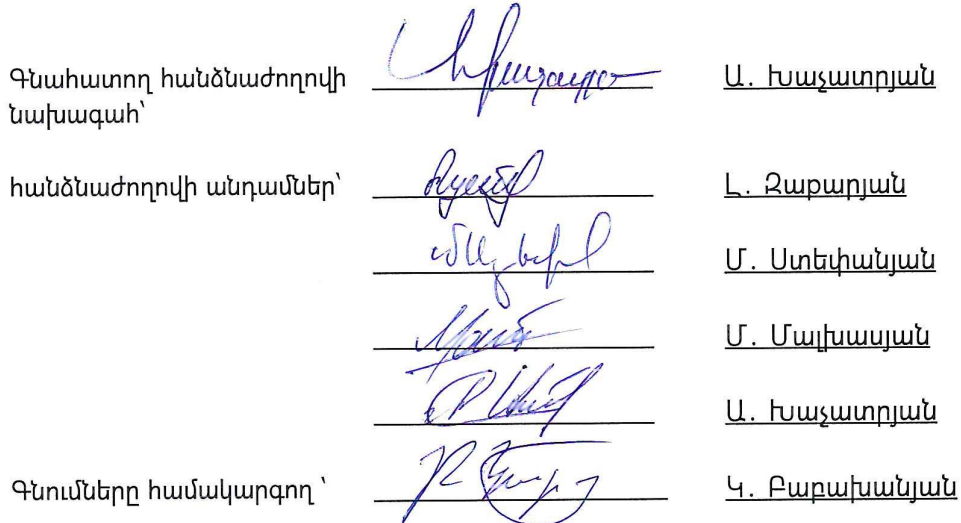 Գնահատող հանձնաժողովի Ա. Խաչատրյան
նախագահ՝
հանձնաժողովի անդամներ՝ Լ. Զաքարյան
Մ. Ստեփանյան
Մ. Մալխասյան
Ա. Խաչատրյան
Գնումները համակարգող ՝ Կ. Բաբախանյան